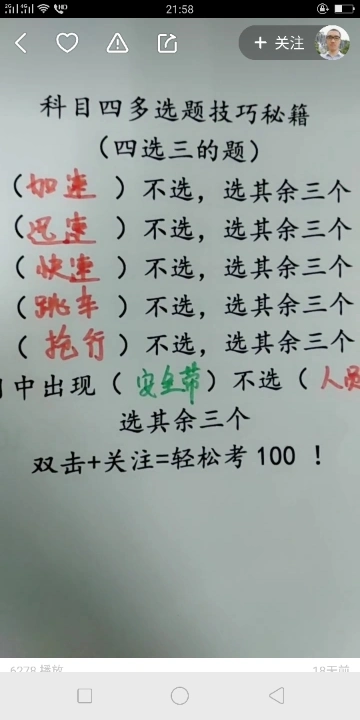 21:58
+ 关注
科目四多选题技巧秘籍
（四选三的题）
（加速）不选，选其余三个
（迅速）不选，选其余三个
（快速）不选，选其余三个
（跳车）不选，选其余三个
（抢行）不选，选其余三个
中出现（安全带）不选（人员
选其余三个
双击+关注=轻松考100！
6278播放
18天前